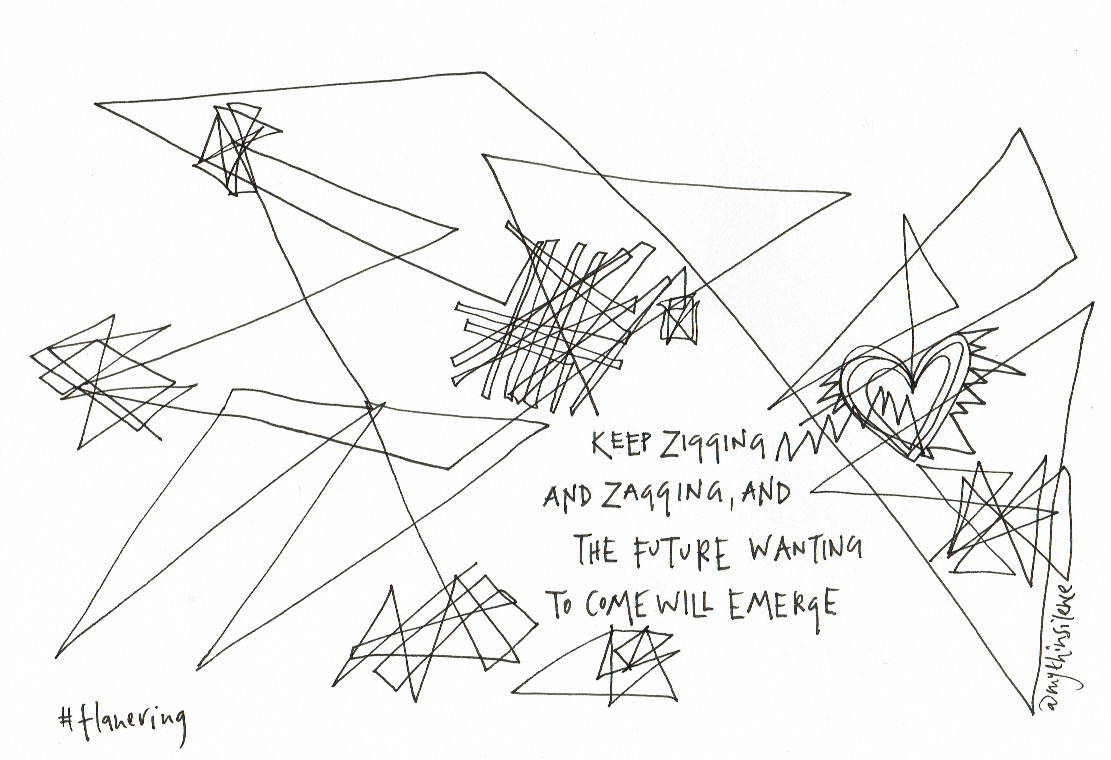 KEEP ZIGGING
AND ZAGGING, AND
THE FUTURE WANTING
TO COME WILL EMERGE
@mythinsilence
#flanering